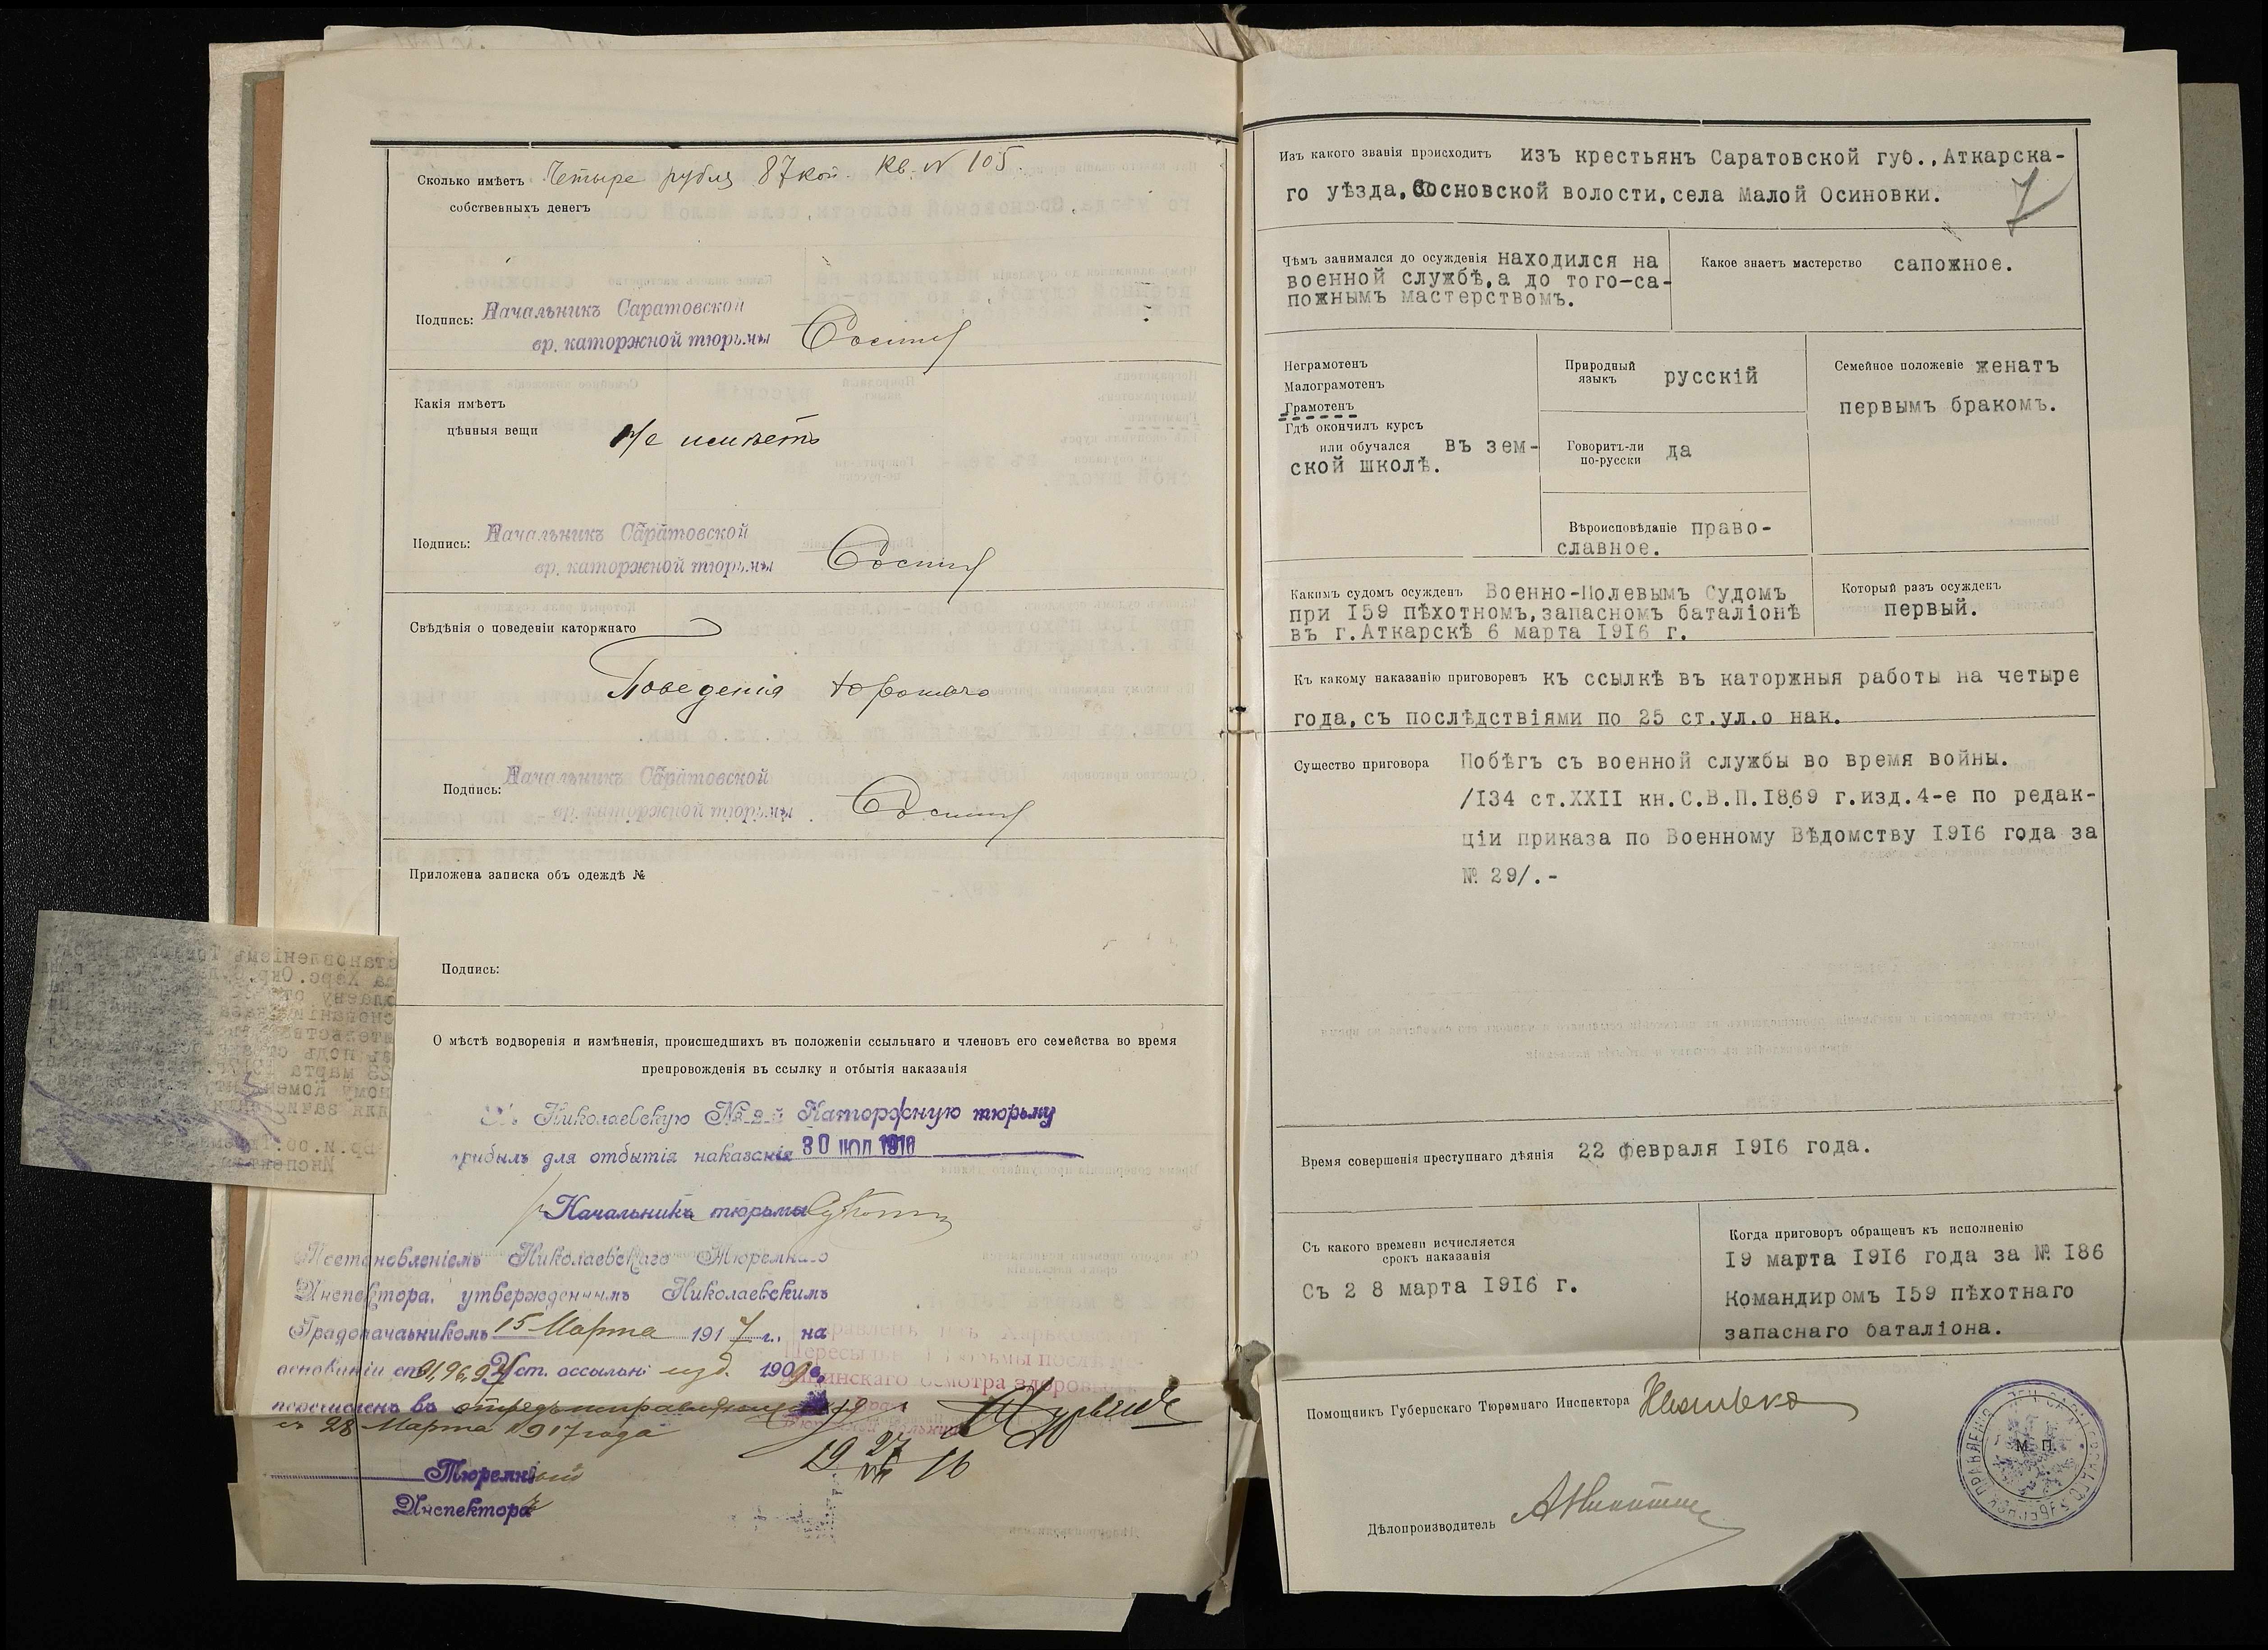 Сколько имѣетъ Четыре рубля 87 коп. Кв. № 105.
собственныхъ денегъ
Подпись: Начальникъ Саратовской
вр. каторжной тюрьмы
Какія имѣетъ
цѣнныя вещи Не имѣетъ
Подпись: Начальникъ Саратовской
вр. каторжной тюрьмы
Свѣдѣнія о поведеніи каторжнаго
Поведенія хорошаго
Подпись: Начальникъ Саратовской
вр. каторжной тюрьмы
Приложена записка объ одеждѣ №
Подпись:
О мѣстѣ водворенія и измѣненія, происшедшихъ въ положеніи ссыльнаго и членовъ его семейства во время
препровожденія въ ссылку и отбытія наказанія
Николаевскую № 2-й Каторжную тюрьму
прибылъ для отбытія наказанія 30 ІЮЛ 1916
Начальникъ тюрьмы
Постановленіемъ Николаевскаго Тюремнаго
Инспектора, утвержденнымъ Николаевскимъ
Градоначальникомъ 15 Марта 1917 г., на
основаніи ст. Уст. о ссыльн. изд. 1909 г.
перечисленъ въ
съ 28 Марта 1917 года
Пересыльн тюрьмы послѣ
осмотра
19 27/VII 16
Тюремный
Инспекторъ
Изъ какого званія происходитъ изъ крестьянъ Саратовской губ., Аткарска-
го уѣзда, Сосновской волости, села Малой Осиновки.
7
Чѣмъ занимался до осужденія находился на
военной службѣ, а до того-са-
пожнымъ мастерствомъ.
Какое знаетъ мастерство сапожное.
Неграмотенъ
Малограмотенъ
Грамотенъ
Гдѣ окончилъ курсъ
или обучался въ зем-
ской школѣ.
Природный
языкъ русскій
Говоритъ-ли
по-русски да
Вѣроисповѣданіе право-
славное.
Семейное положеніе женатъ
первымъ бракомъ.
Какимъ судомъ осужденъ Военно-Полевымъ Судомъ
при 159 пѣхотномъ, запасномъ баталіонѣ
въ г. Аткарскѣ 6 марта 1916 г.
Который разъ осужденъ
первый.
Къ какому наказанію приговоренъ къ ссылкѣ въ каторжныя работы на четыре
года, съ послѣдствіями по 25 ст. ул. о нак.
Существо приговора Побѣгъ съ военной службы во время войны.
/134 ст. XXII кн. С.В.П. 1869 г. изд. 4-е по редак-
ціи приказа по Военному Вѣдомству 1916 года за
№ 29/.-
Время совершенія преступнаго дѣянія 22 февраля 1916 года.
Съ какого времени исчисляется
срокъ наказанія
Съ 2 8 марта 1916 г.
Когда приговоръ обращенъ къ исполненію
19 марта 1916 года за № 186
Командиромъ 159 пѣхотнаго
запаснаго баталіона.
Помощникъ Губернскаго Тюремнаго Инспектора
М. П.
Дѣлопроизводитель АНикитин